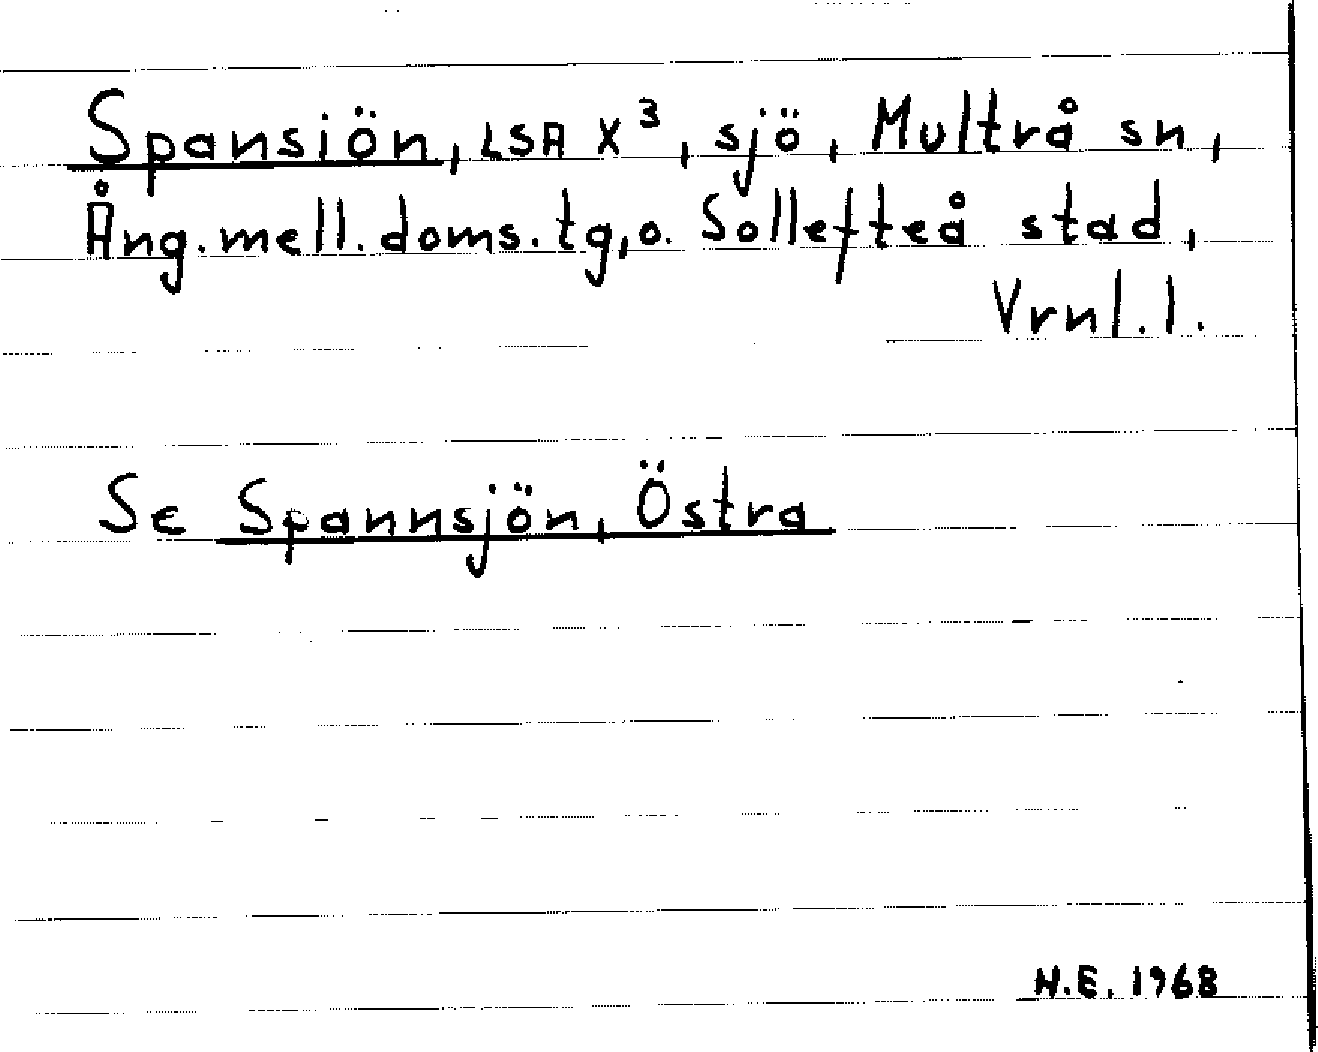 Spansiön, LSA X³, sjö, Multrå sn,
Ång. mell. doms. tg, o. Sollefteå stad,
Vrnl. l.
Se Spannsjön, Östra
N.E. 1968